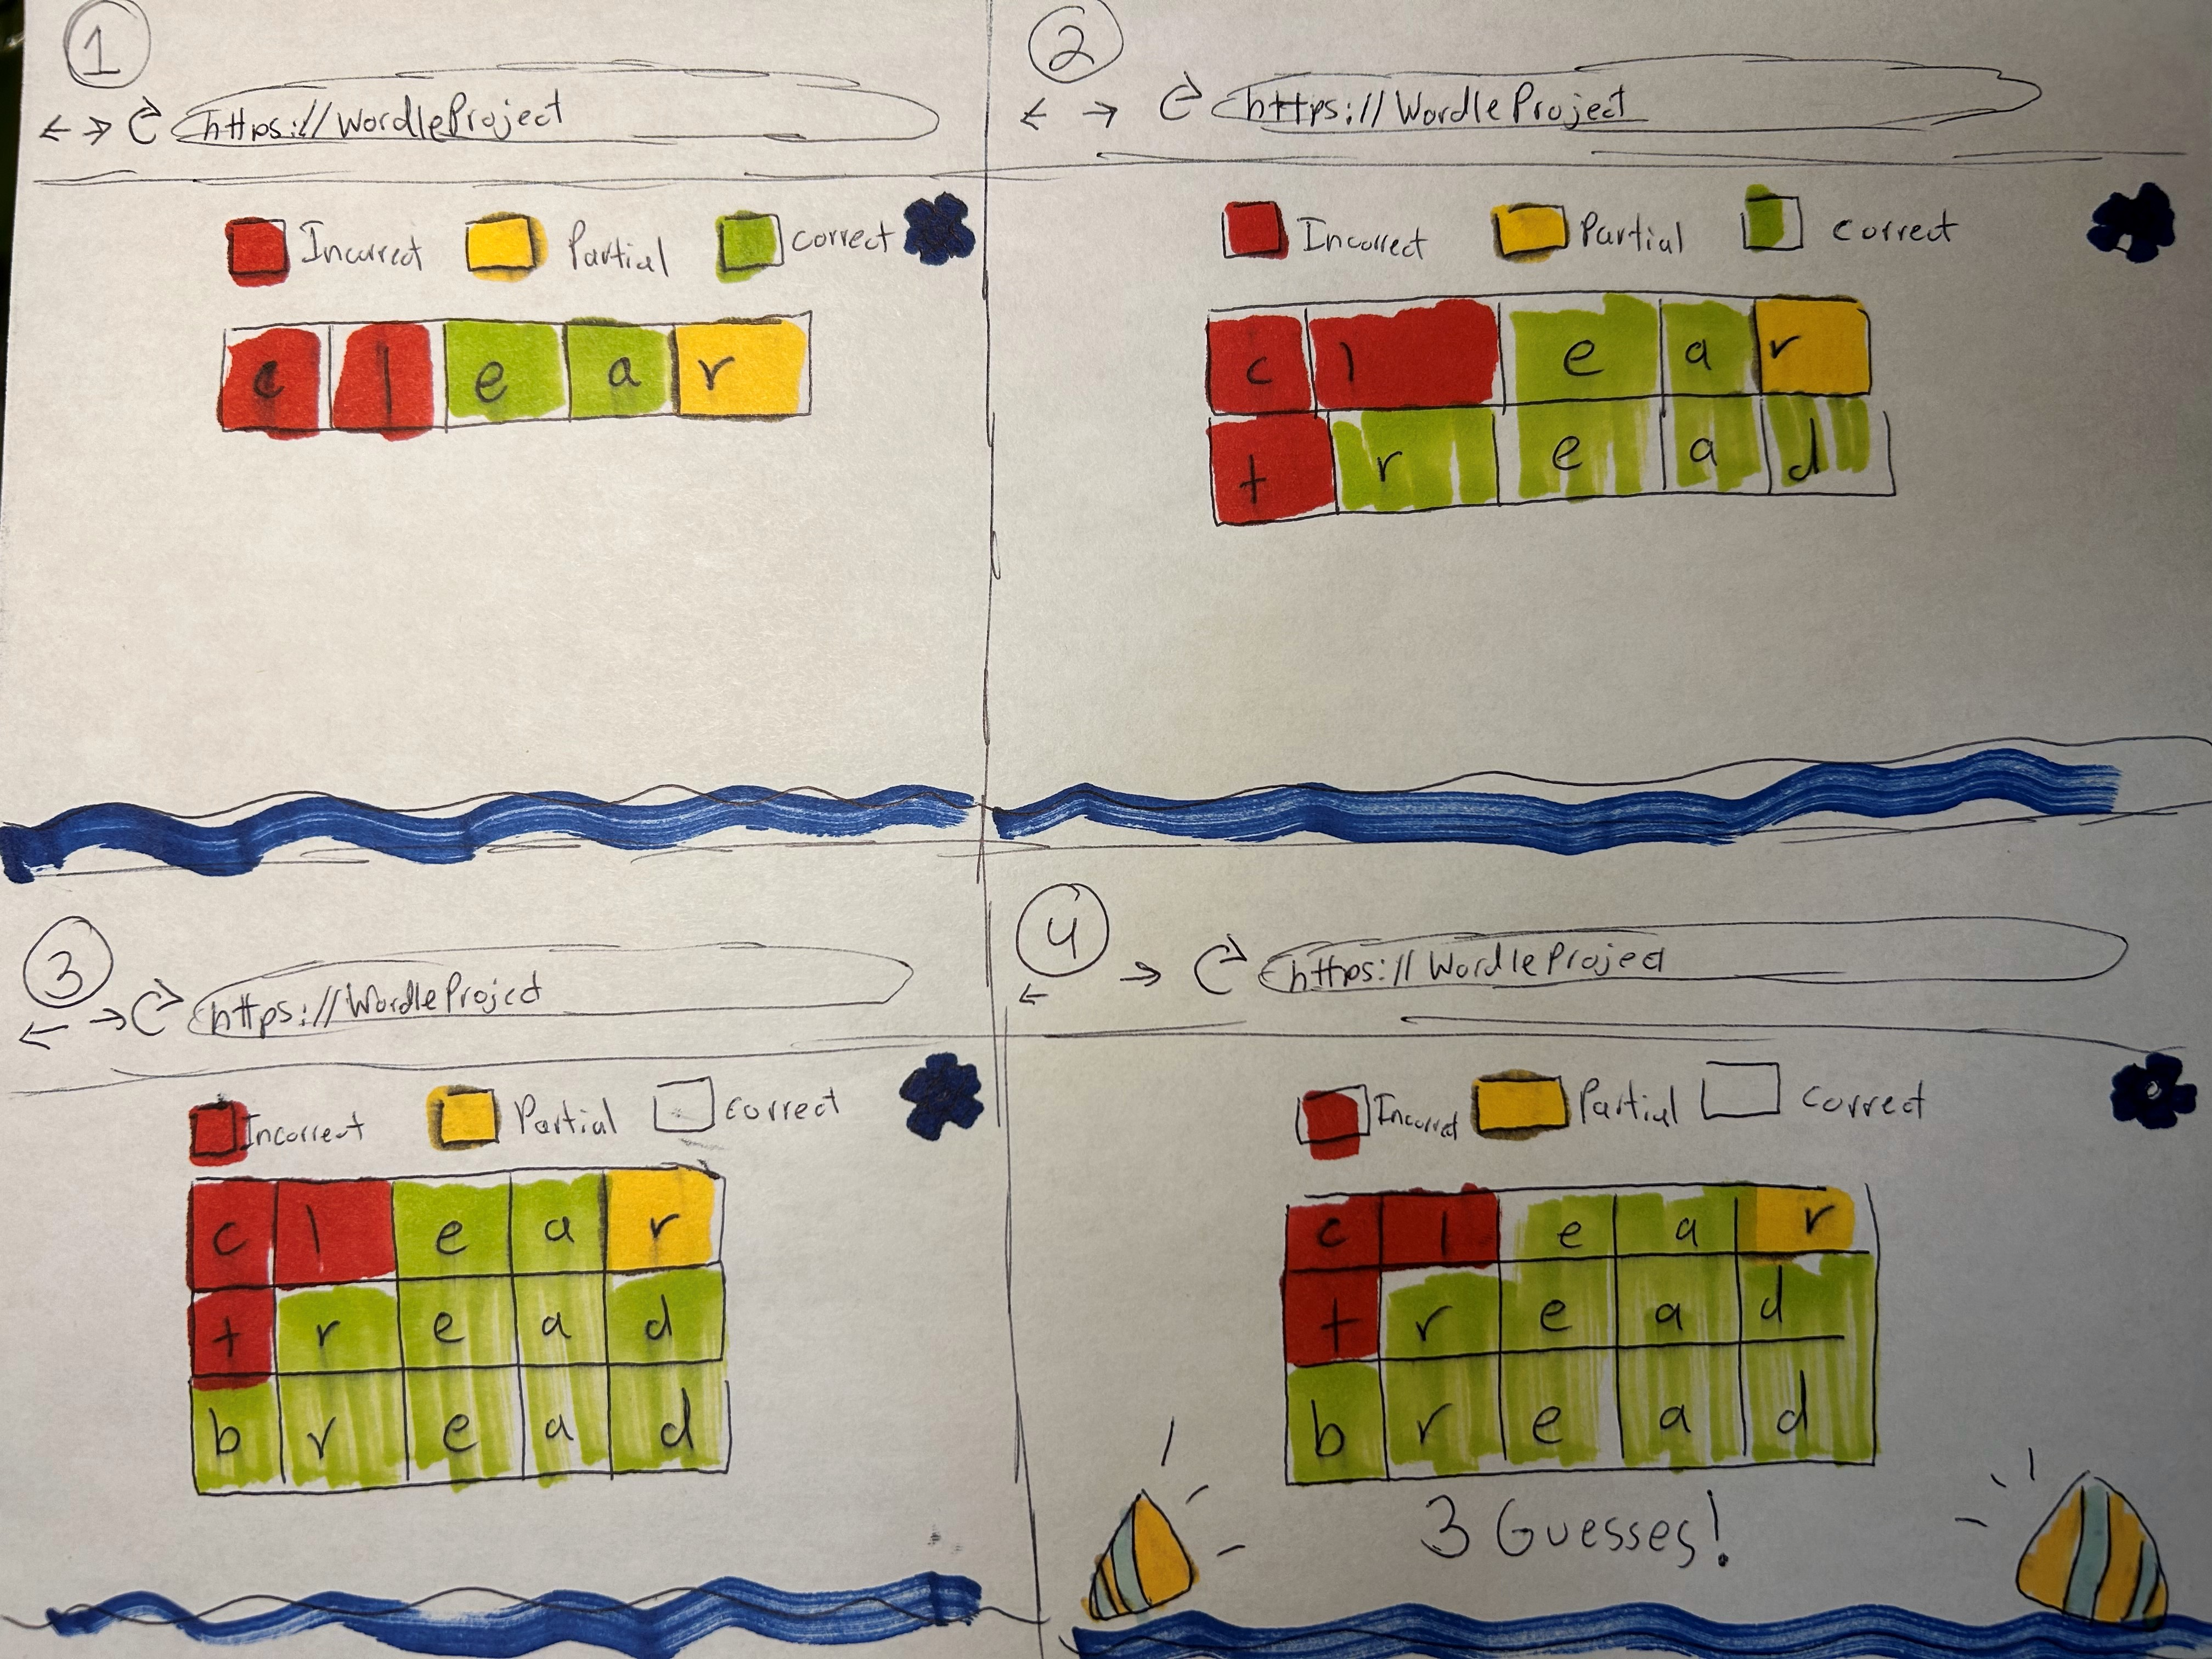 1
https://WordleProject
Incorrect Partial correct
c l e a r
2
https://WordleProject
Incorrect Partial correct
c l e a r
t r e a d
3
https://WordleProject
Incorrect Partial correct
c l e a r
t r e a d
b r e a d
4
https://WordleProject
Incorrect Partial correct
c l e a r
t r e a d
b r e a d
3 Guesses!